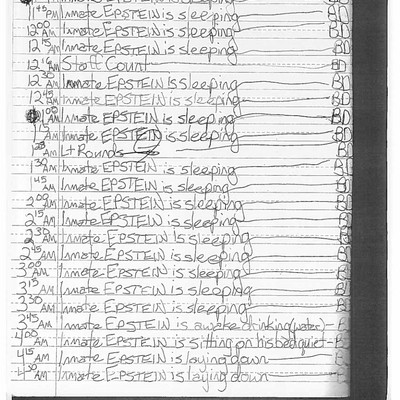 11:45 PM Inmate EPSTEIN is sleeping BD
12:00 AM Inmate EPSTEIN is sleeping BD
12:15 AM Inmate EPSTEIN is sleeping BD
AM Staff Count BD
12:30 AM Inmate EPSTEIN is sleeping BD
12:45 AM Inmate EPSTEIN is sleeping BD
1:00 AM Inmate EPSTEIN is sleeping BD
1:15 AM Inmate EPSTEIN is sleeping BD
AM Lt Rounds BD
1:30 AM Inmate EPSTEIN is sleeping BD
1:45 AM Inmate EPSTEIN is sleeping BD
2:00 AM Inmate EPSTEIN is sleeping BD
2:15 AM Inmate EPSTEIN is sleeping BD
2:30 AM Inmate EPSTEIN is sleeping BD
2:45 AM Inmate EPSTEIN is sleeping BD
3:00 AM Inmate EPSTEIN is sleeping BD
3:15 AM Inmate EPSTEIN is sleeping BD
3:30 AM Inmate EPSTEIN is sleeping BD
3:45 AM Inmate EPSTEIN is awake drinking (water)
4:00 AM Inmate EPSTEIN is sitting on his bed quiet
4:15 AM Inmate EPSTEIN is laying down BD
4:30 AM Inmate EPSTEIN is laying down BD